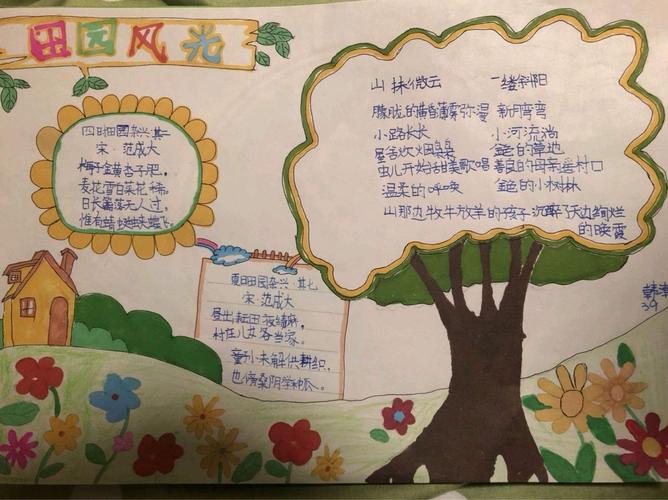 田园风光
四时田园杂兴·其一
宋·范成大
梅子金黄杏子肥,
麦花雪白菜花稀。
日长篱落无人过,
惟有蜻蜓蛱蝶飞。
夏日田园杂兴·其七
宋·范成大
昼出耘田夜绩麻,
村庄儿女各当家。
童孙未解供耕织,
也傍桑阴学种瓜。
山抹微云 一缕斜阳
朦胧的黄昏薄雾弥漫 新月弯弯
小路长长 小河流淌
屋舍炊烟袅袅 金色的草地
虫儿开始甜美歌唱 善良的母亲 村口
温柔的呼唤 金色的小树林
山那边牧牛放羊的孩子 沉醉了天边绚烂
的晚霞
39